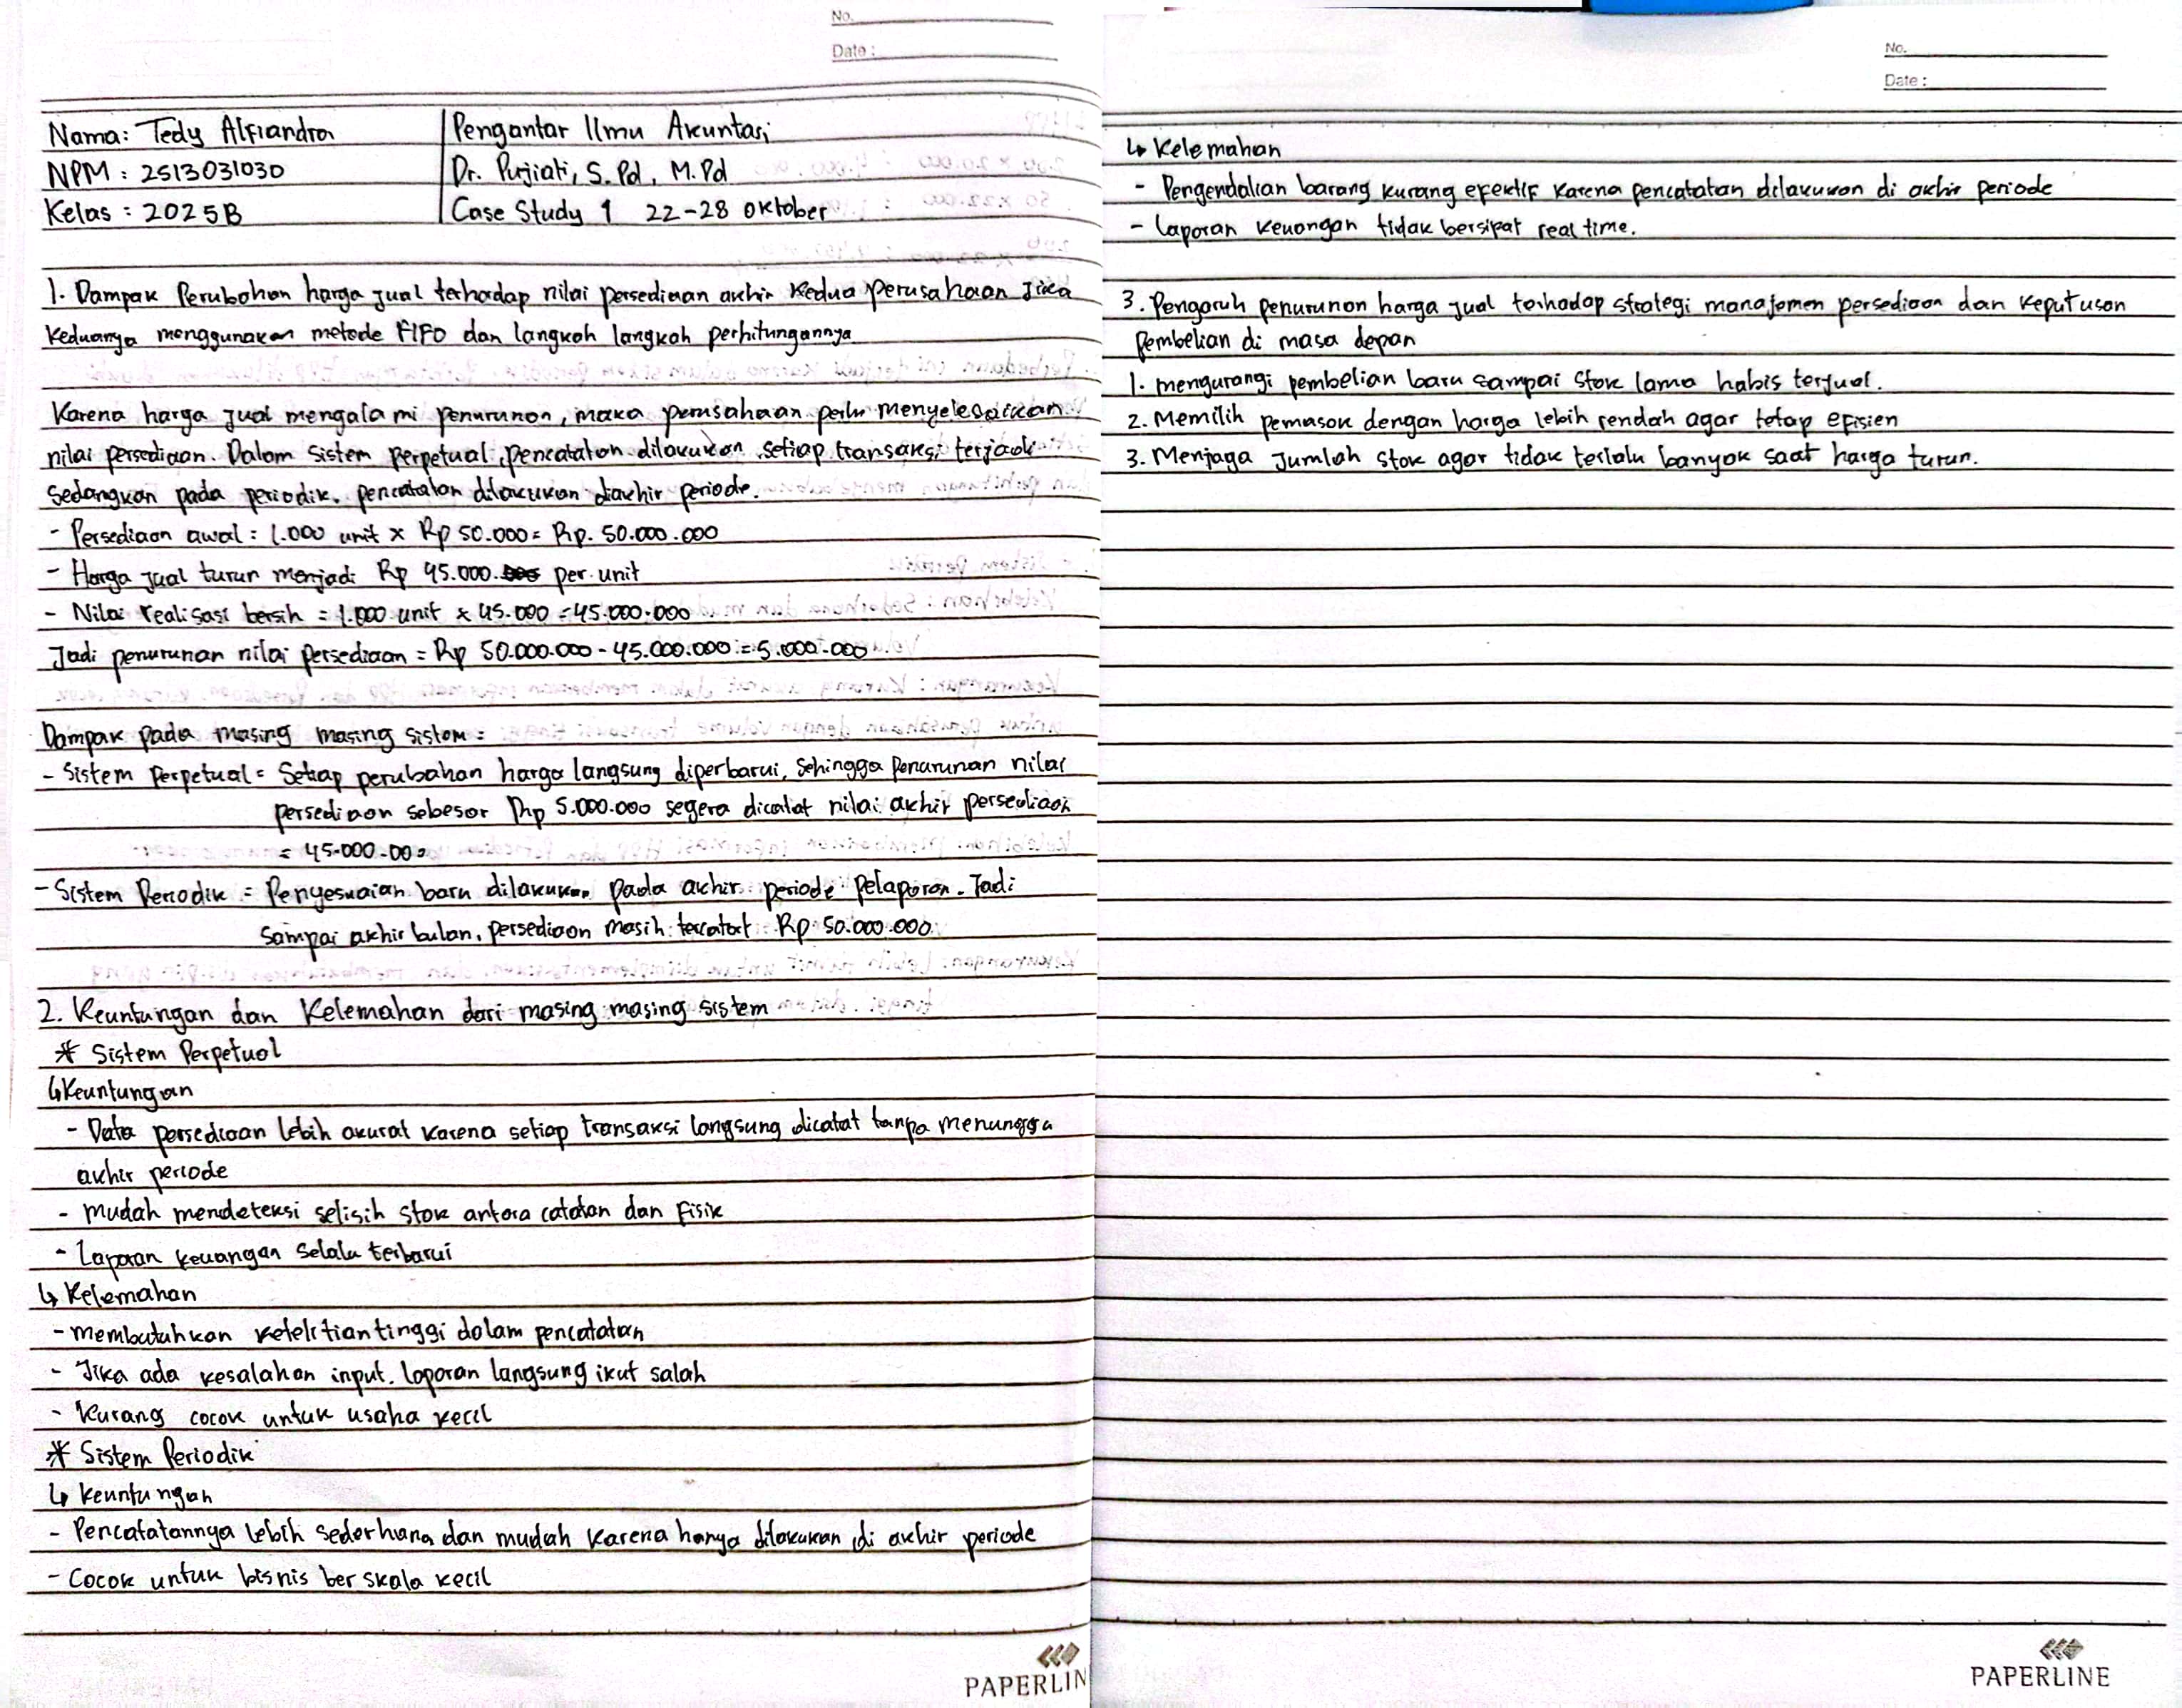 No.
Date :
Nama: Tedy Alfiandra
NPM : 2513031030
Kelas : 2025B
Pengantar Ilmu Akuntasi
Dr. Pujiati, S.Pd, M.Pd
Case Study 1 22-28 Oktober
1. Dampak Perubahan harga jual terhadap nilai persediaan akhir kedua perusahaan jika
keduanya menggunakan metode FIFO dan langkah langkah perhitungannya
Karena harga jual mengalami penurunan, maka perusahaan perlu menyelesaikan
nilai persediaan. Dalam sistem perpetual, pencatatan dilakukan setiap transaksi terjadi
sedangkan pada periodik, pencatatan dilakukan diakhir periode.
- Persediaan awal = 1.000 unit x Rp 50.000 = Rp. 50.000.000
- Harga jual turun menjadi Rp 45.000 per unit
- Nilai realisasi bersih = 1.000 unit x 45.000 = 45.000.000
Jadi penurunan nilai persediaan = Rp 50.000.000 - 45.000.000 = 5.000.000
Dampak pada masing masing sistem =
- Sistem Perpetual = Setiap perubahan harga langsung diperbarui, sehingga penurunan nilai
persediaan sebesar Rp 5.000.000 segera dicatat nilai akhir persediaan
= 45.000.000
- Sistem Periodik = Penyesuaian baru dilakukan pada akhir periode pelaporan. Jadi
sampai akhir bulan, persediaan masih tercatat Rp 50.000.000
2. Keuntungan dan Kelemahan dari masing masing sistem
* Sistem Perpetual
↳ Keuntungan
- Data persediaan lebih akurat karena setiap transaksi langsung dicatat tanpa menungga
akhir periode
- mudah mendeteksi selisih stok antara catatan dan fisik
- Laporan keuangan selalu terbarui
↳ Kelemahan
- membutuhkan ketelitian tinggi dalam pencatatan
- Jika ada kesalahan input, laporan langsung ikut salah
- Kurang cocok untuk usaha kecil
* Sistem Periodik
↳ Keuntungan
- Pencatatannya lebih sederhana dan mudah karena hanya dilakukan di akhir periode
- Cocok untuk bisnis berskala kecil
PAPERLIN
No.
Date :
↳ Kelemahan
- Pengendalian barang kurang efektif karena pencatatan dilakukan di akhir periode
- Laporan keuangan tidak bersipat real time.
3. Pengaruh penurunan harga jual terhadap strategi manajemen persediaan dan keputusan
pembelian di masa depan
1. mengurangi pembelian baru sampai stok lama habis terjual.
2. Memilih pemasok dengan harga lebih rendah agar tetap efisien
3. Menjaga jumlah stok agar tidak terlalu banyak saat harga turun.
PAPERLINE